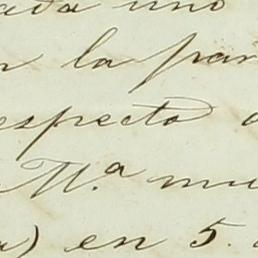 cada uno
n la par
especto
M.ª mu
a) en 5.